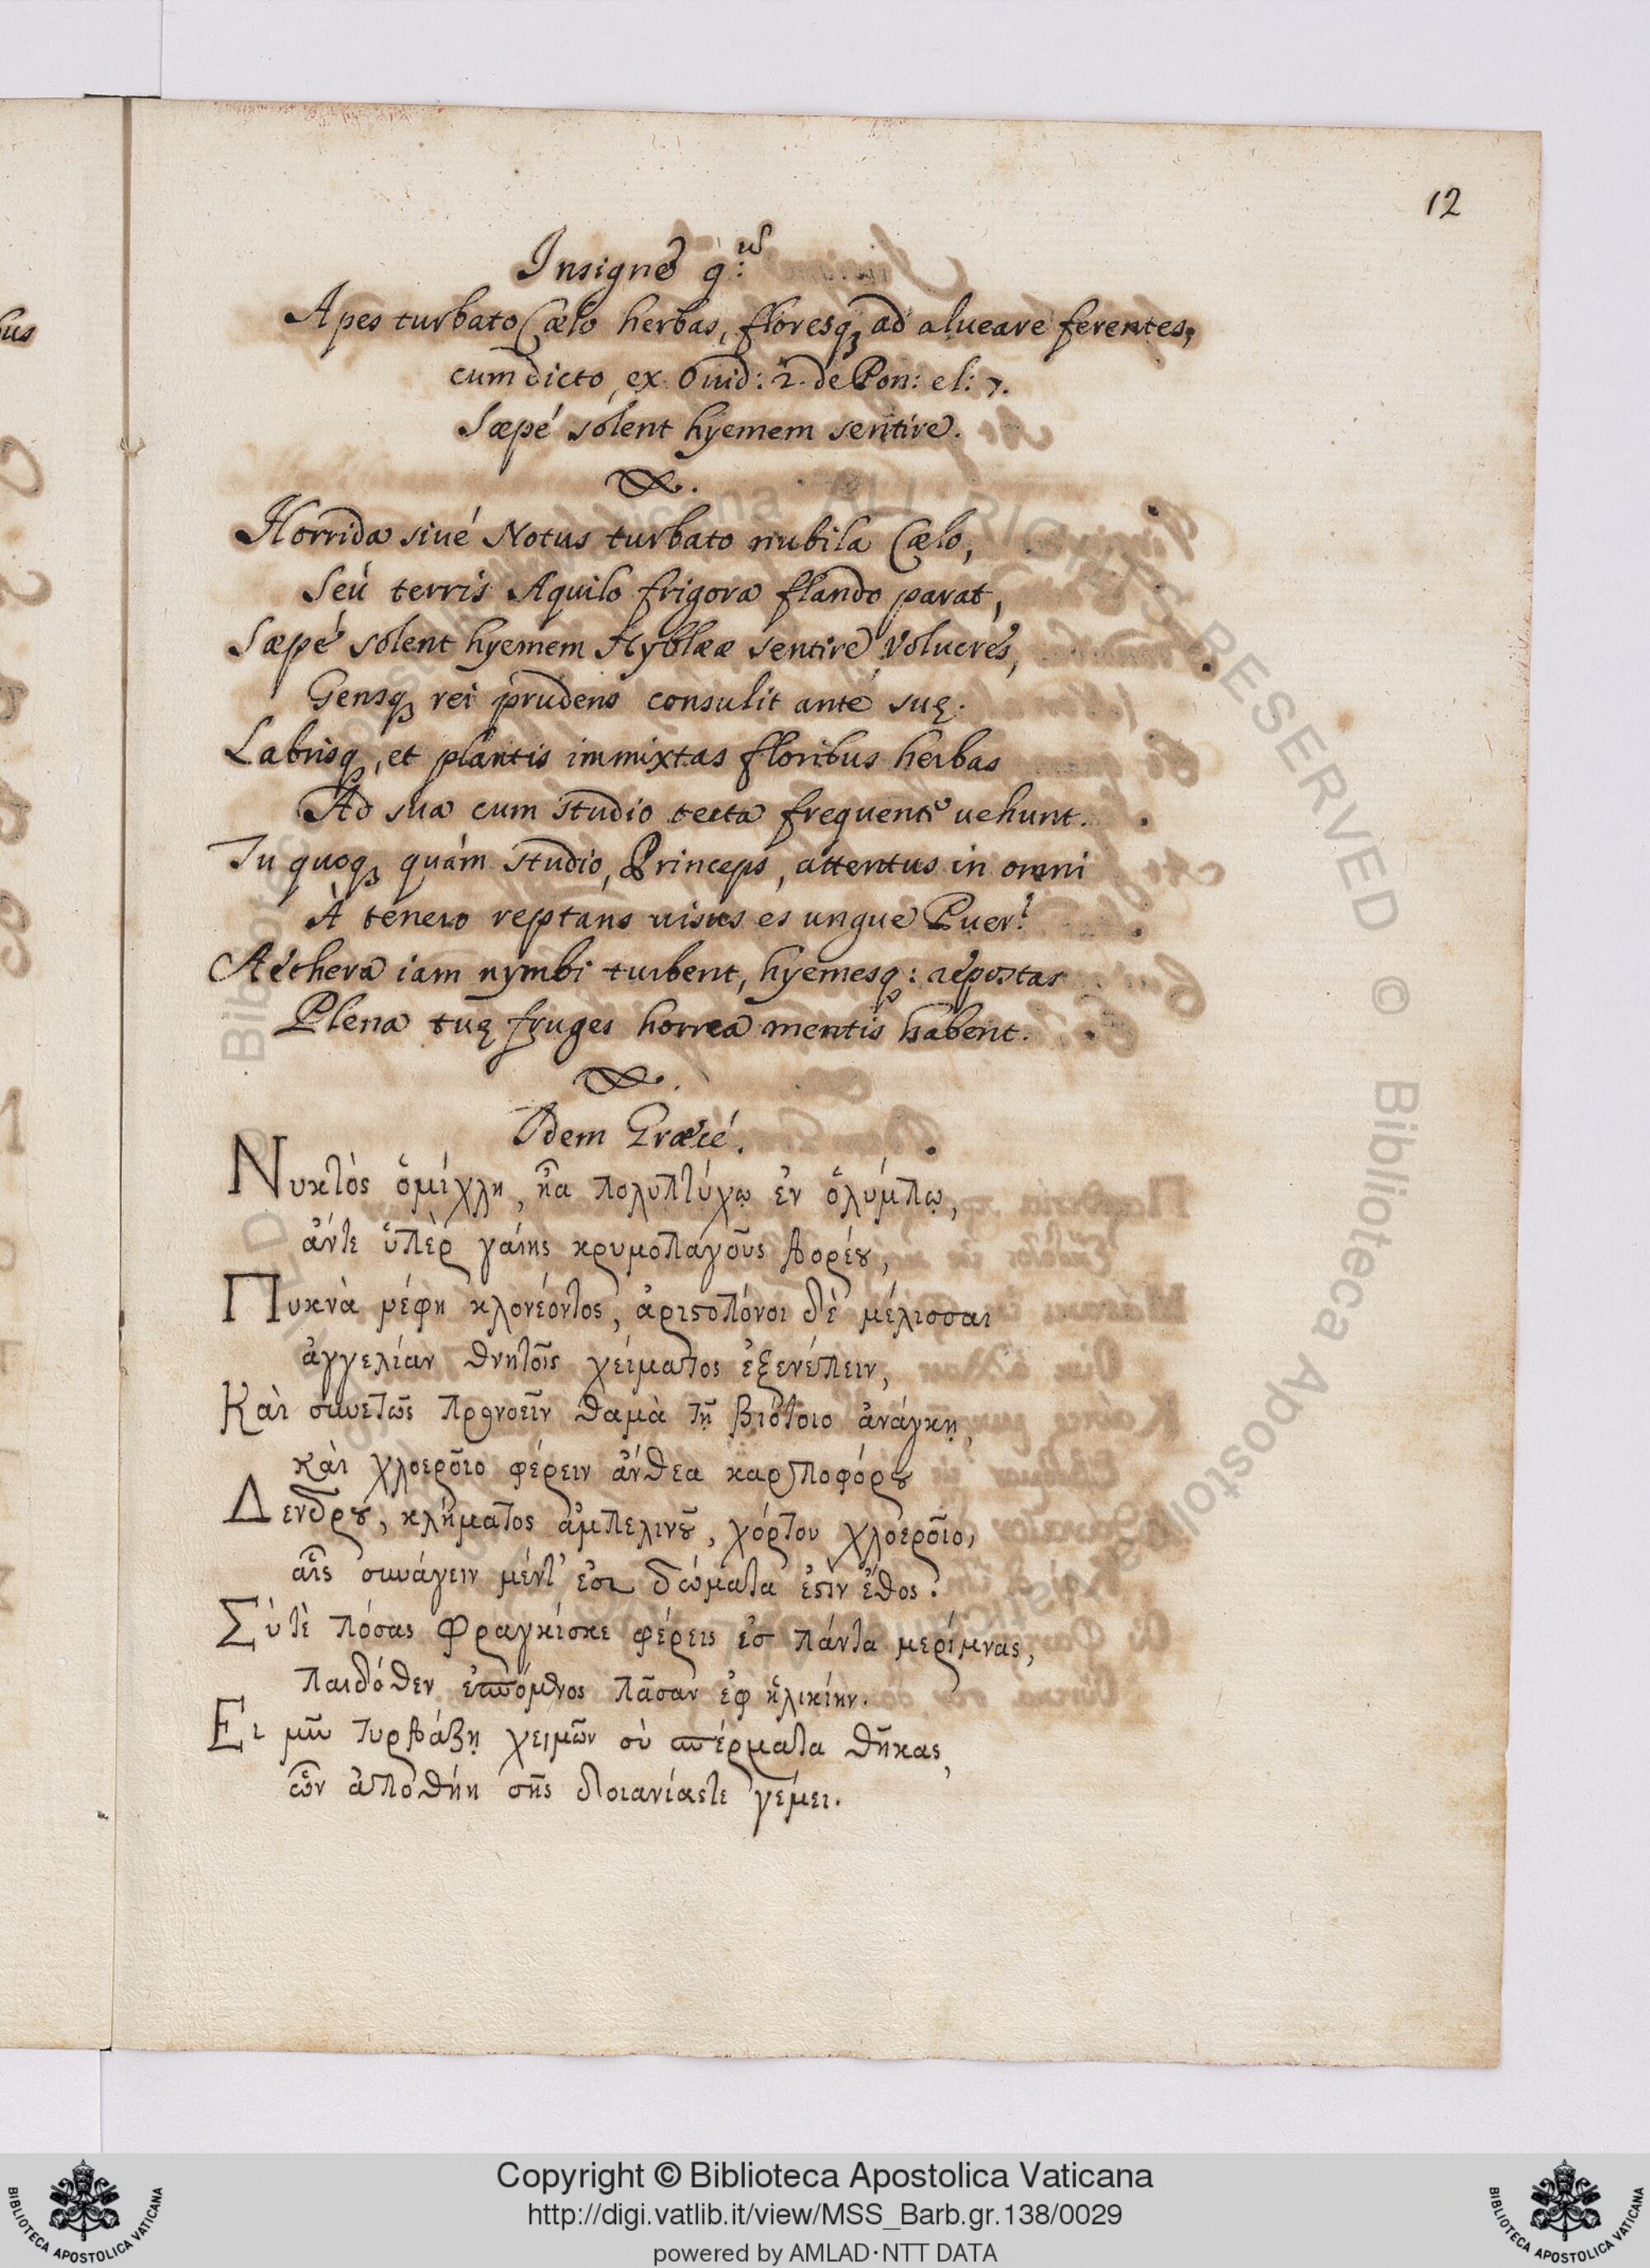 12
Insigne q:us
Apes turbato Cælo herbas, floresqȝ ad alueare ferentes,
cum dicto ex Ouid: 2. de Pon: el: 7.
Sæpé sólent hyemem sentire.
Horrida siué Notus turbato nubila Cælo,
Seù terris Aquilo frigora flando parat,
Sæpé solent hyemem Hyblææ sentire Volucres,
Gensqȝ rei prudens consulit anté suę.
Labrisqȝ, et plantis immixtas floribus herbas
Ad sua cum studio tecta frequenti uehunt.
Tu quoqȝ quám studio, Princeps, attentus in omni
À tenero reptans uisus es ungue Puer?
Aéthera iam nymbi turbent, hyemesqȝ: repostas
Plena tuę fruges horrea mentis habent.
Idem Græcé.
Νυκτὸς ὁμίχλη, πολυπτύχῳ ἐν ὀλύμπῳ,
ἀντε ὑπὲρ γαίης κρυμοπαγοῦς βορέȣ,
Πυκνὰ νέφη κλονέοντος, ἀριςοπόνοι δὲ μέλισσαι
ἀγγελίαν θνητοῖς χείματος ἐξενέπειν,
Καὶ συνετῶς προνοεῖν θαμὰ τῇ βιότοιο ἀνάγκῃ,
καὶ χλοεροῖο φέρειν ἄνθεα καρποφόρȣ
Δενδρȣ, κλήματος ἀμπελινȣ͂, χόρτου χλοεροῖο,
αἷς συνάγειν μέντ' δώματα ἐςὶν ἔθος.
Σύ τὲ πόσας Φραγκίσκε φέρεις ἐσ πάντα μερίμνας,
παιδόθεν πᾶσαν ἐφ ἡλικίην.
Ει τυρβάζῃ χειμῶν σὺ σπέρματα θῆκας,
ὧν ἀποθήη σῆς γέμει.
Copyright © Biblioteca Apostolica Vaticana
http://digi.vatlib.it/view/MSS_Barb.gr.138/0029
powered by AMLAD·NTT DATA
BIBLIOTECA APOSTOLICA VATICANA
BIBLIOTECA APOSTOLICA VATICANA